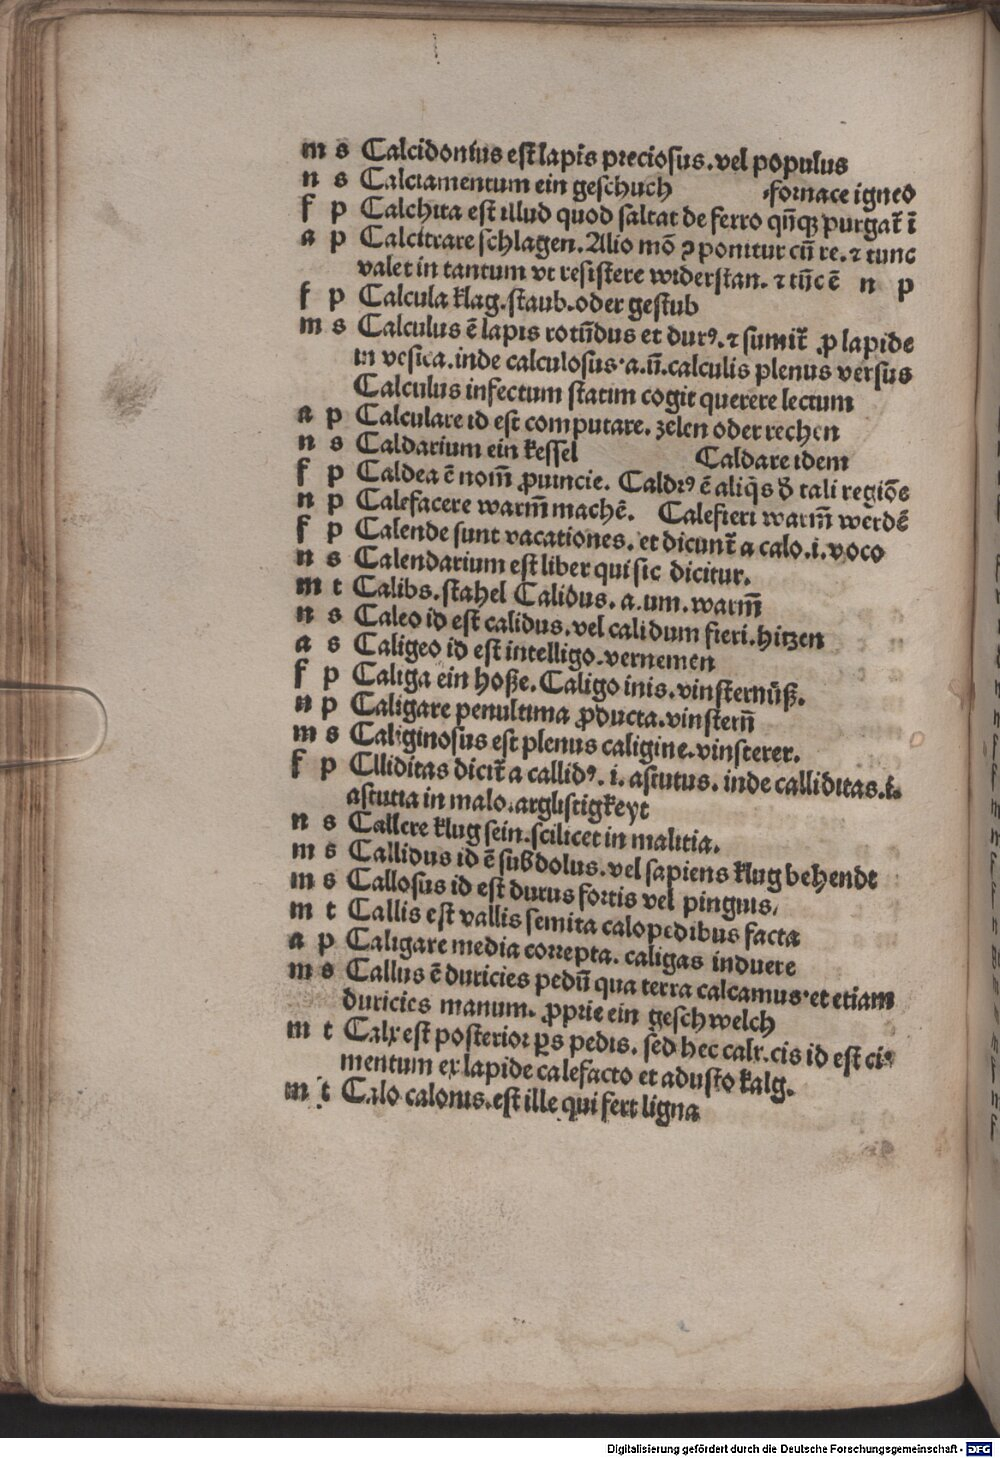 m s Calcidonius est lapis preciosus. vel populus
n s Calciamentum ein geschuch ‧fornace igneo
f p Calchita est illud quod saltat de ferro qn̄qꝫ purgat᷑ ī
a p Calcitrare schlagen. Alio mō ꝯponitur cū re. ⁊ tunc
valet in tantum vt resistere widerstan. ⁊ tūc ē n p
f p Calcula klag. staub. oder gestub
m s Calculus ē lapis rotūdus et durꝰ. ⁊ sumit᷑ ꝓ lapide
in vesica. inde calculosus. a. ū. calculis plenus versus
Calculus infectum statim cogit querere lectum
a p Calculare id est computare. zelen oder rechen
n s Caldarium ein kessel Caldare idem
f p Caldea ē nom̄ ꝓuincie. Caldeꝰ ē aliq̄s d᷑ tali regiōe
n p Calefacere warm̄ machē. Calefieri warm̄ werdē
f p Calende sunt vacationes. et dicunt᷑ a calo. i. voco
n s Calendarium est liber qui sic dicitur.
m t Calibs. stahel Calidus. a. um. warm̄
n s Caleo id est calidus. vel calidum fieri. hitzen
a s Caligeo id est intelligo. vernemen
f p Caliga ein hoße. Caligo inis. vinsternūß.
n p Caligare penultima ꝓducta. vinstern̄
m s Caliginosus est plenus caligine. vinsterer.
f p Clliditas dicit᷑ a callidꝰ. i. astutus. inde calliditas. i.
astutia in malo. arglistigkeyt
n s Callere klug sein. scilicet in malitia.
m s Callidus id ē subdolus. vel sapiens klug behende
m s Callosus id est durus fortis vel pinguis.
m t Callis est vallis semita calopedibus facta
a p Caligare media correpta. caligas induere
m s Callus ē duricies pedū qua terra calcamus. et etiam
duricies manum. ꝓprie ein geschwelch
m t Calx est posterior ꝑs pedis. sed hec calx. cis id est ci‧
mentum ex lapide calefacto et adusto kalg.
m t Calo calonis. est ille qui fert ligna
Digitalisierung gefördert durch die Deutsche Forschungsgemeinschaft - DFG